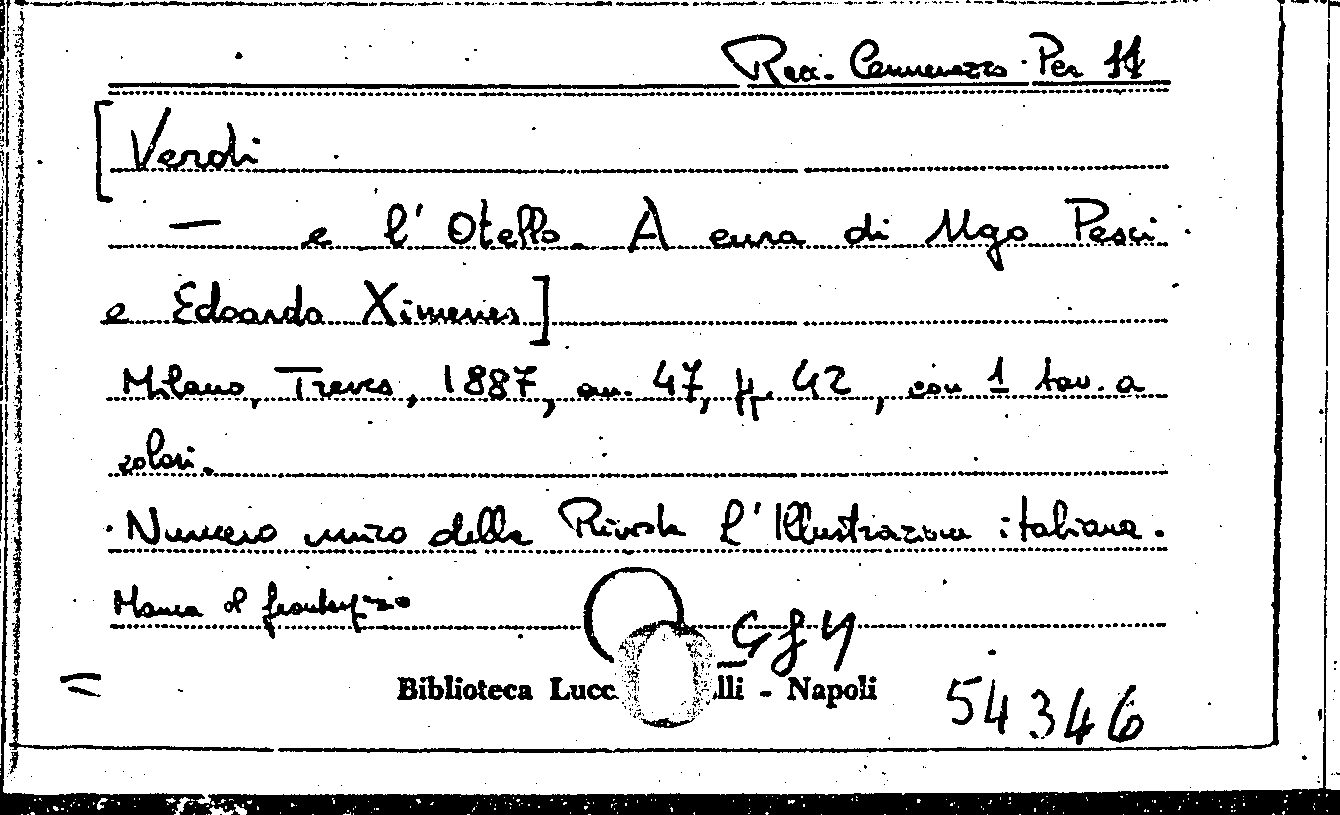 Racc. Cammarazzo Per 11
[Verdi
— e l'Otello. A cura di Ugo Pesci
e Edoardo Ximenes]
Milano, Treves, 1887, cm. 47, pp. 42, con 1 tav. a
colori.
Numero unico della Rivista l'Illustrazione italiana.
Manca il frontespizio
Biblioteca Lucc lli - Napoli
54346